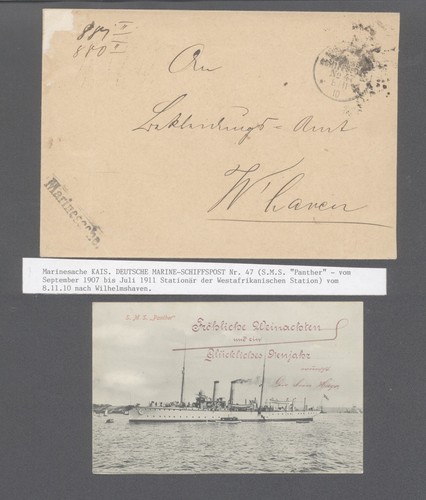 880 II
An
Bekleidungs-Amt
W'haven
Marinesache.
Marinesache KAIS. DEUTSCHE MARINE-SCHIFFSPOST Nr. 47 (S.M.S. "Panther" - vom
September 1907 bis Juli 1911 Stationär der Westafrikanischen Station) vom
8.11.10 nach Wilhelmshaven.
S. M. S. „Panther"
Fröhliche Weinachten
und ein
Glückliches Neujahr
wünscht